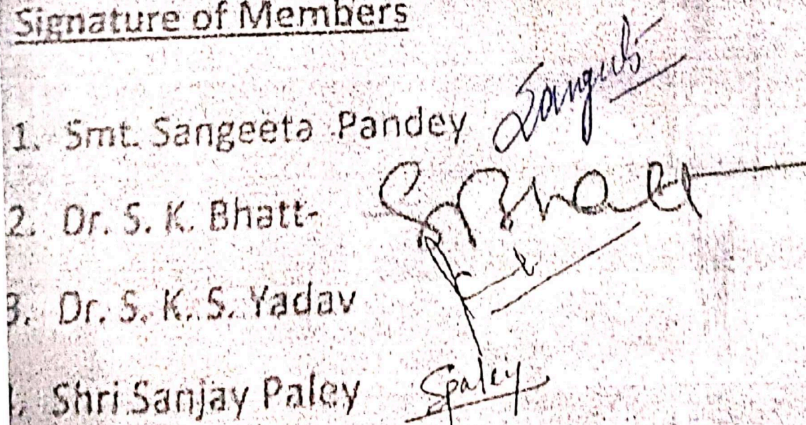 Signature of Members
1. Smt. Sangeeta Pandey Sangeeta
2. Dr. S. K. Bhatt- SBhatt
3. Dr. S. K. S. Yadav
. Shri Sanjay Paley Spaley